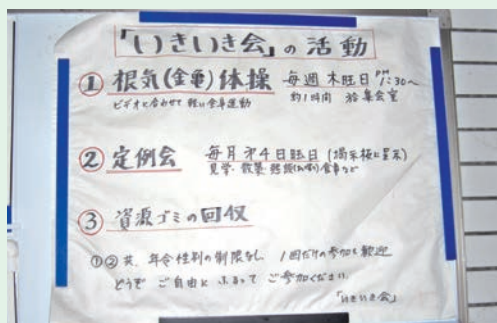 「いきいき会」の活動
① 根気(金重)体操 毎週木旺日 PM1:30〜
ビデオに合わせて軽い全身運動 約1時間 於集会室
② 定例会 毎月才4日旺日(掲示板に呈示)
見学・散策・雑談 食事など
③ 資源ゴミの回収
①②共、年令性別の制限なし 1回だけの参加も歓迎
どうぞ ご自由に ふるって ご参加ください。
「いきいき会」